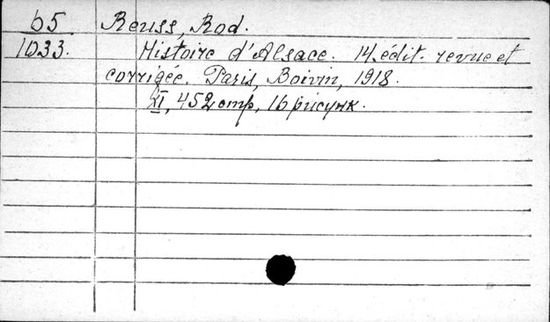 65 Reuss, Rod.
1033. Histoire d'Alsace. 14 edit. revue et
corrigée. Paris, Boivin, 1918.
XI, 452 стр, 16 рисунк.